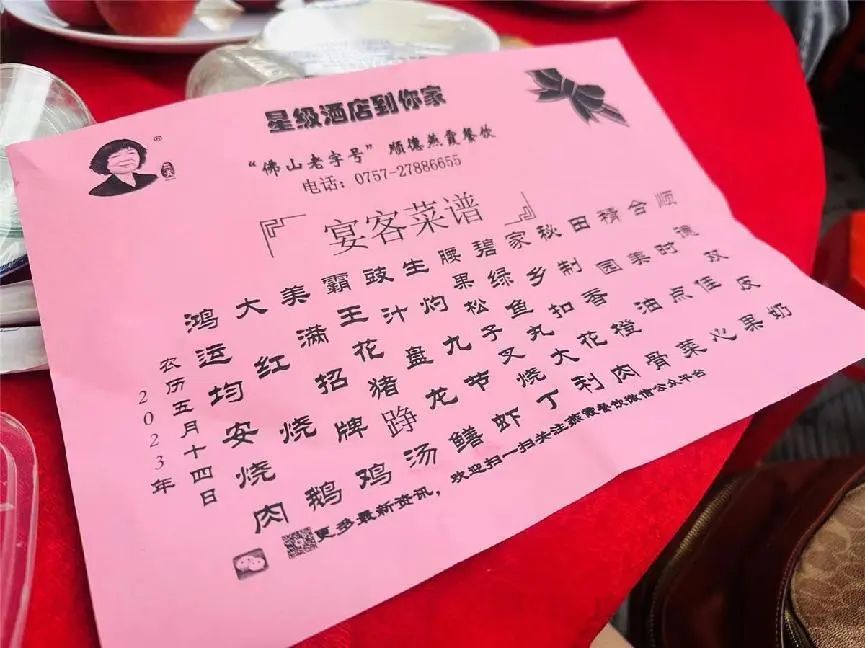 星级酒店到你家
“佛山老字号”顺德燕霞餐饮
电话：0757-27886655
宴客菜谱
顺德双皮奶
合时佳果
精美点心
田园油菜
秘制香橙骨
家乡扣花肉
碧绿鱼丸大利
腰果松子叉烧丁
生灼九节虾
豉汁盘龙鳝
霸王花猪踭汤
美满招牌鸡
大红烧鹅
鸿运均安烧肉
农历五月十四日
2023年
更多最新资讯，欢迎扫一扫关注燕霞餐饮微信公众平台